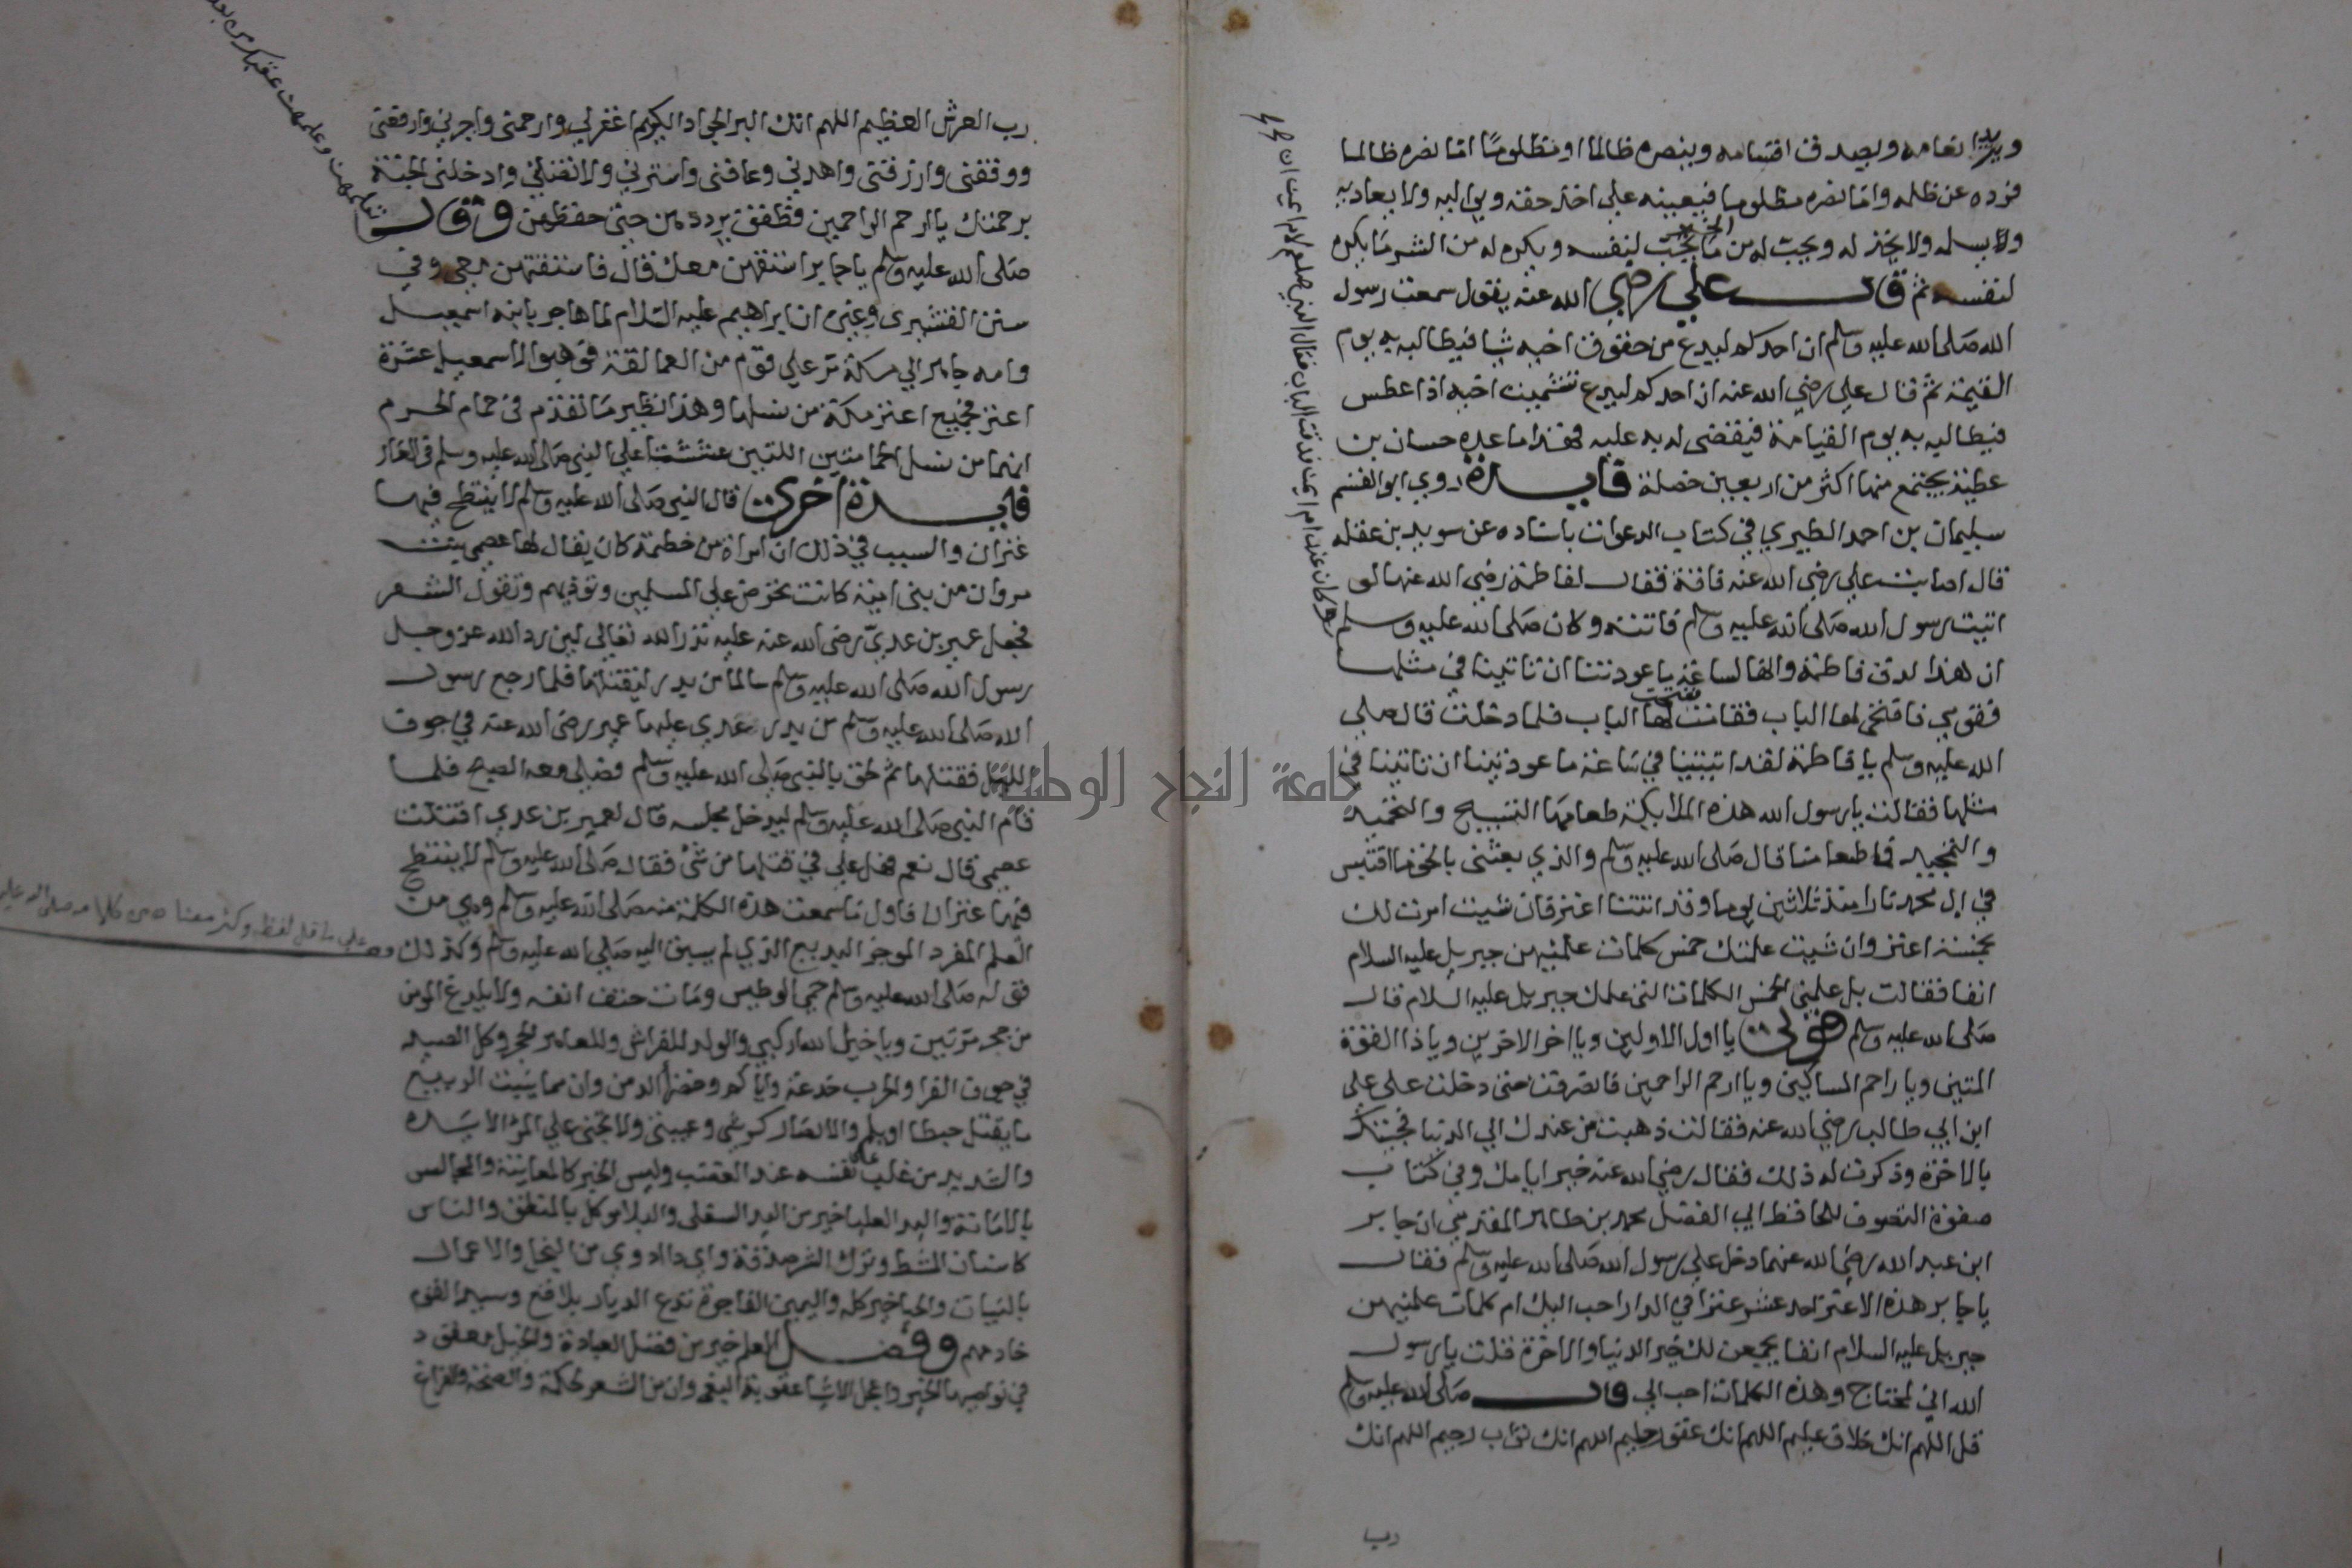 ويزيد انعامه ويصدق اقسامه وينصره ظالما او مظلوما اما نصره ظالما
فرده عن ظلمه واما نصره مظلوما فيعينه على اخذ حقه ويواليه ولا يعاديه
ولا يسلمه ولا يخذله ويحب له من الخير ما يحب لنفسه ويكره له من الشر ما يكره
لنفسه ثم قال علي رضي الله عنه يقول سمعت رسول
الله صلى الله عليه وسلم ان احدكم ليدع من حقوق اخيه شيا فيطالبه به يوم
القيمة ثم قال علي رضي الله عنه ان احدكم ليدع تشميت اخيه اذا عطس
فيطالبه به يوم القيامة فيقضى له به عليه فهذا ما عده حسان بن
عطية يجتمع منها اكثر من اربعين خصلة فايدة روى ابو القسم
سليمان بن احمد الطبري في كتاب الدعوات باسناده عن سويد بن غفله
قال اصابت علي رضي الله عنه فاقة فقال لفاطمة رضي الله عنها لو
اتيت رسول الله صلى الله عليه وسلم فاتته وكان صلى الله عليه وسلم
ان هذا لدق فاطمة وانها لساعة ما عودتنا ان تاتينا في مثلها
فقومي فافتحي لها الباب ففتحت لها الباب فلما دخلت قال صلى
الله عليه وسلم يا فاطمة لقد اتيتينا في ساعة ما عودتينا ان تاتينا في
مثلها فقالت يا رسول الله هذه الملايكة طعامها التسبيح والتحميد
والتمجيد فما طعامنا قال صلى الله عليه وسلم والذي بعثني بالحق ما اقتبس
في ال محمد نارا منذ ثلاثين يوما وقد اتتنا اعنز فان شيت امرت لك
بخمسة اعنز وان شيت علمتك خمس كلمات علمنيهن جبريل عليه السلام
انفا فقالت بل علمني الخمس الكلمات التي علمك جبريل عليه السلام قال
صلى الله عليه وسلم قولي يا اول الاولين ويا اخر الاخرين ويا ذا القوة
المتين ويا راحم المساكين ويا ارحم الراحمين فانصرفت حتى دخلت على علي
ابن ابي طالب رضي الله عنه فقالت ذهبت من عندك الى الدنيا فجيتك
بالاخرة وذكرت له ذلك فقال رضي الله عنه خير ايامك وفي كتاب
صفوة التصوف للحافظ ابي الفضل محمد بن طاهر المقدسي ان جابر
ابن عبد الله رضي الله عنهما دخل على رسول الله صلى الله عليه وسلم فقال
يا جابر هذه الاعنز احد عشر عنزا في الدار احب اليك ام كلمات علمنيهن
جبريل عليه السلام انفا يجمعن لك خير الدنيا والاخرة فقلت يا رسول
الله اني لمحتاج وهذه الكلمات احب الي قال صلى الله عليه وسلم
قل اللهم انك خلاق عليم اللهم انك غفور حليم اللهم انك تواب رحيم اللهم انك
رب
رب العرش العظيم اللهم انك البر الجواد الكريم اغفر لي وارحمني واجرني وارفعني
ووفقني وارزقني واهدني وعافني واسترني ولا تضلني وادخلني الجنة
برحمتك يا ارحم الراحمين فطفق يرددهن حتى حفظهن وقال
صلى الله عليه وسلم يا جابر استقهن معك قال فاستقتهن معي وفي
سنن القشيري وغيره ان ابراهيم عليه السلام لما هاجر بابنه اسمعيل
وامه هاجر الى مكة مر على قوم من العمالقة فوهبوا لاسمعيل عشرة
اعنز فجميع اعنز مكة من نسلها وهذا نظير ما تقدم في حمام الحرم
انهما من نسل الحمامتين اللتين عششتا على النبي صلى الله عليه وسلم في الغار
فايدة اخرى قال النبي صلى الله عليه وسلم لا ينتطح فيها
عنزان والسبب في ذلك ان امراة من خطمة كان يقال لها عصمى بنت
مروان من بني امية كانت تحرض على المسلمين وتوذيهم وتقول الشعر
فجعل عمير بن عدي رضي الله عنه عليه نذرا لله تعالى لين رد الله عز وجل
رسول الله صلى الله عليه وسلم سالما من بدر ليقتلنها فلما رجع رسول
الله صلى الله عليه وسلم من بدر عدي عليها عمير رضي الله عنه في جوف
الليل فقتلها ثم لحق بالنبي صلى الله عليه وسلم فصلى معه الصبح فلما
قام النبي صلى الله عليه وسلم ليدخل مجلسه قال لعمير بن عدي اقتلت
عصمى قال نعم فهل علي في قتلها من شئ فقال صلى الله عليه وسلم لا ينتطح
فيها عنزان فاول ما سمعت هذه الكلمة منه صلى الله عليه وسلم وهي من
الكلم المفرد الموجز البديع الذي لم يسبق اليه صلى الله عليه وسلم وكذلك
قوله صلى الله عليه وسلم حمي الوطيس ومات حتف انفه ولا يلدغ المومن
من جحر مرتين ويا خيل الله اركبي والولد للفراش وللعاهر الحجر وكل الصيد
في جوف الفرا والحرب خدعة واياكم وخضرا الدمن وان مما ينبت الربيع
ما يقتل حبطا او يلم والانصار كرشي وعيبتي ولا تجني على المرء الا يده
والشديد من غلب نفسه عند الغضب وليس الخبر كالمعاينة والمجالس
بالامانة واليد العليا خير من اليد السفلى والبلا موكل بالمنطق والناس
كاسنان المشط وترك الشر صدقة واي دا ادوى من البخل والاعمال
بالنيات والحيا خير كله واليمين الفاجرة تدع الديار بلاقع وسيد القوم
خادمهم وفضل العلم خير من فضل العبادة والخيل معقود
في نواصيها الخير واعجل الاشيا عقوبة البغي وان من الشعر لحكمة والصحة والفراغ
جامعة النجاح الوطنية